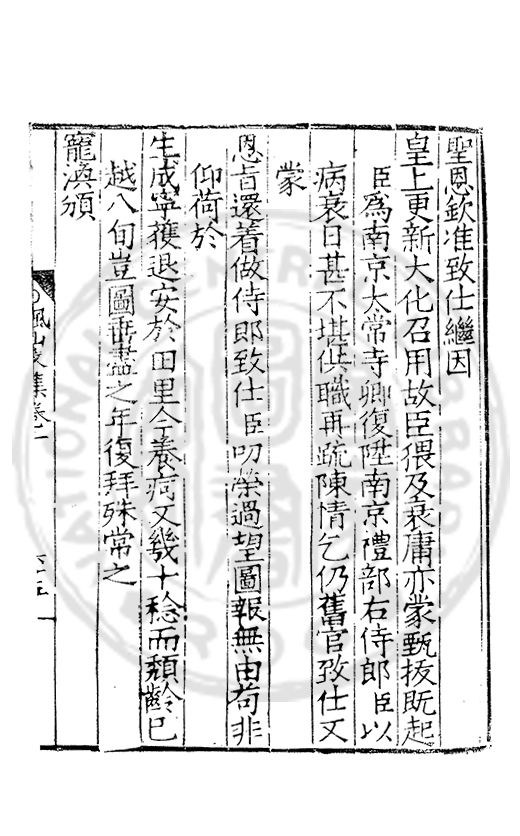 聖恩欽准致仕繼因
皇上更新大化召用故臣猥及衰庸亦蒙甄拔既起
臣為南京太常寺卿復陞南京禮部右侍郎臣以
病衰日甚不堪供職再疏陳情乞仍舊官致仕又
蒙
恩旨還着做侍郎致仕臣叨榮過望圖報無由苟非
仰荷於
生成寧獲退安於田里今養疴又幾十稔而頹齡已
越八旬豈圖垂盡之年復拜殊常之
寵渙頒
楓山文集卷一
六十五